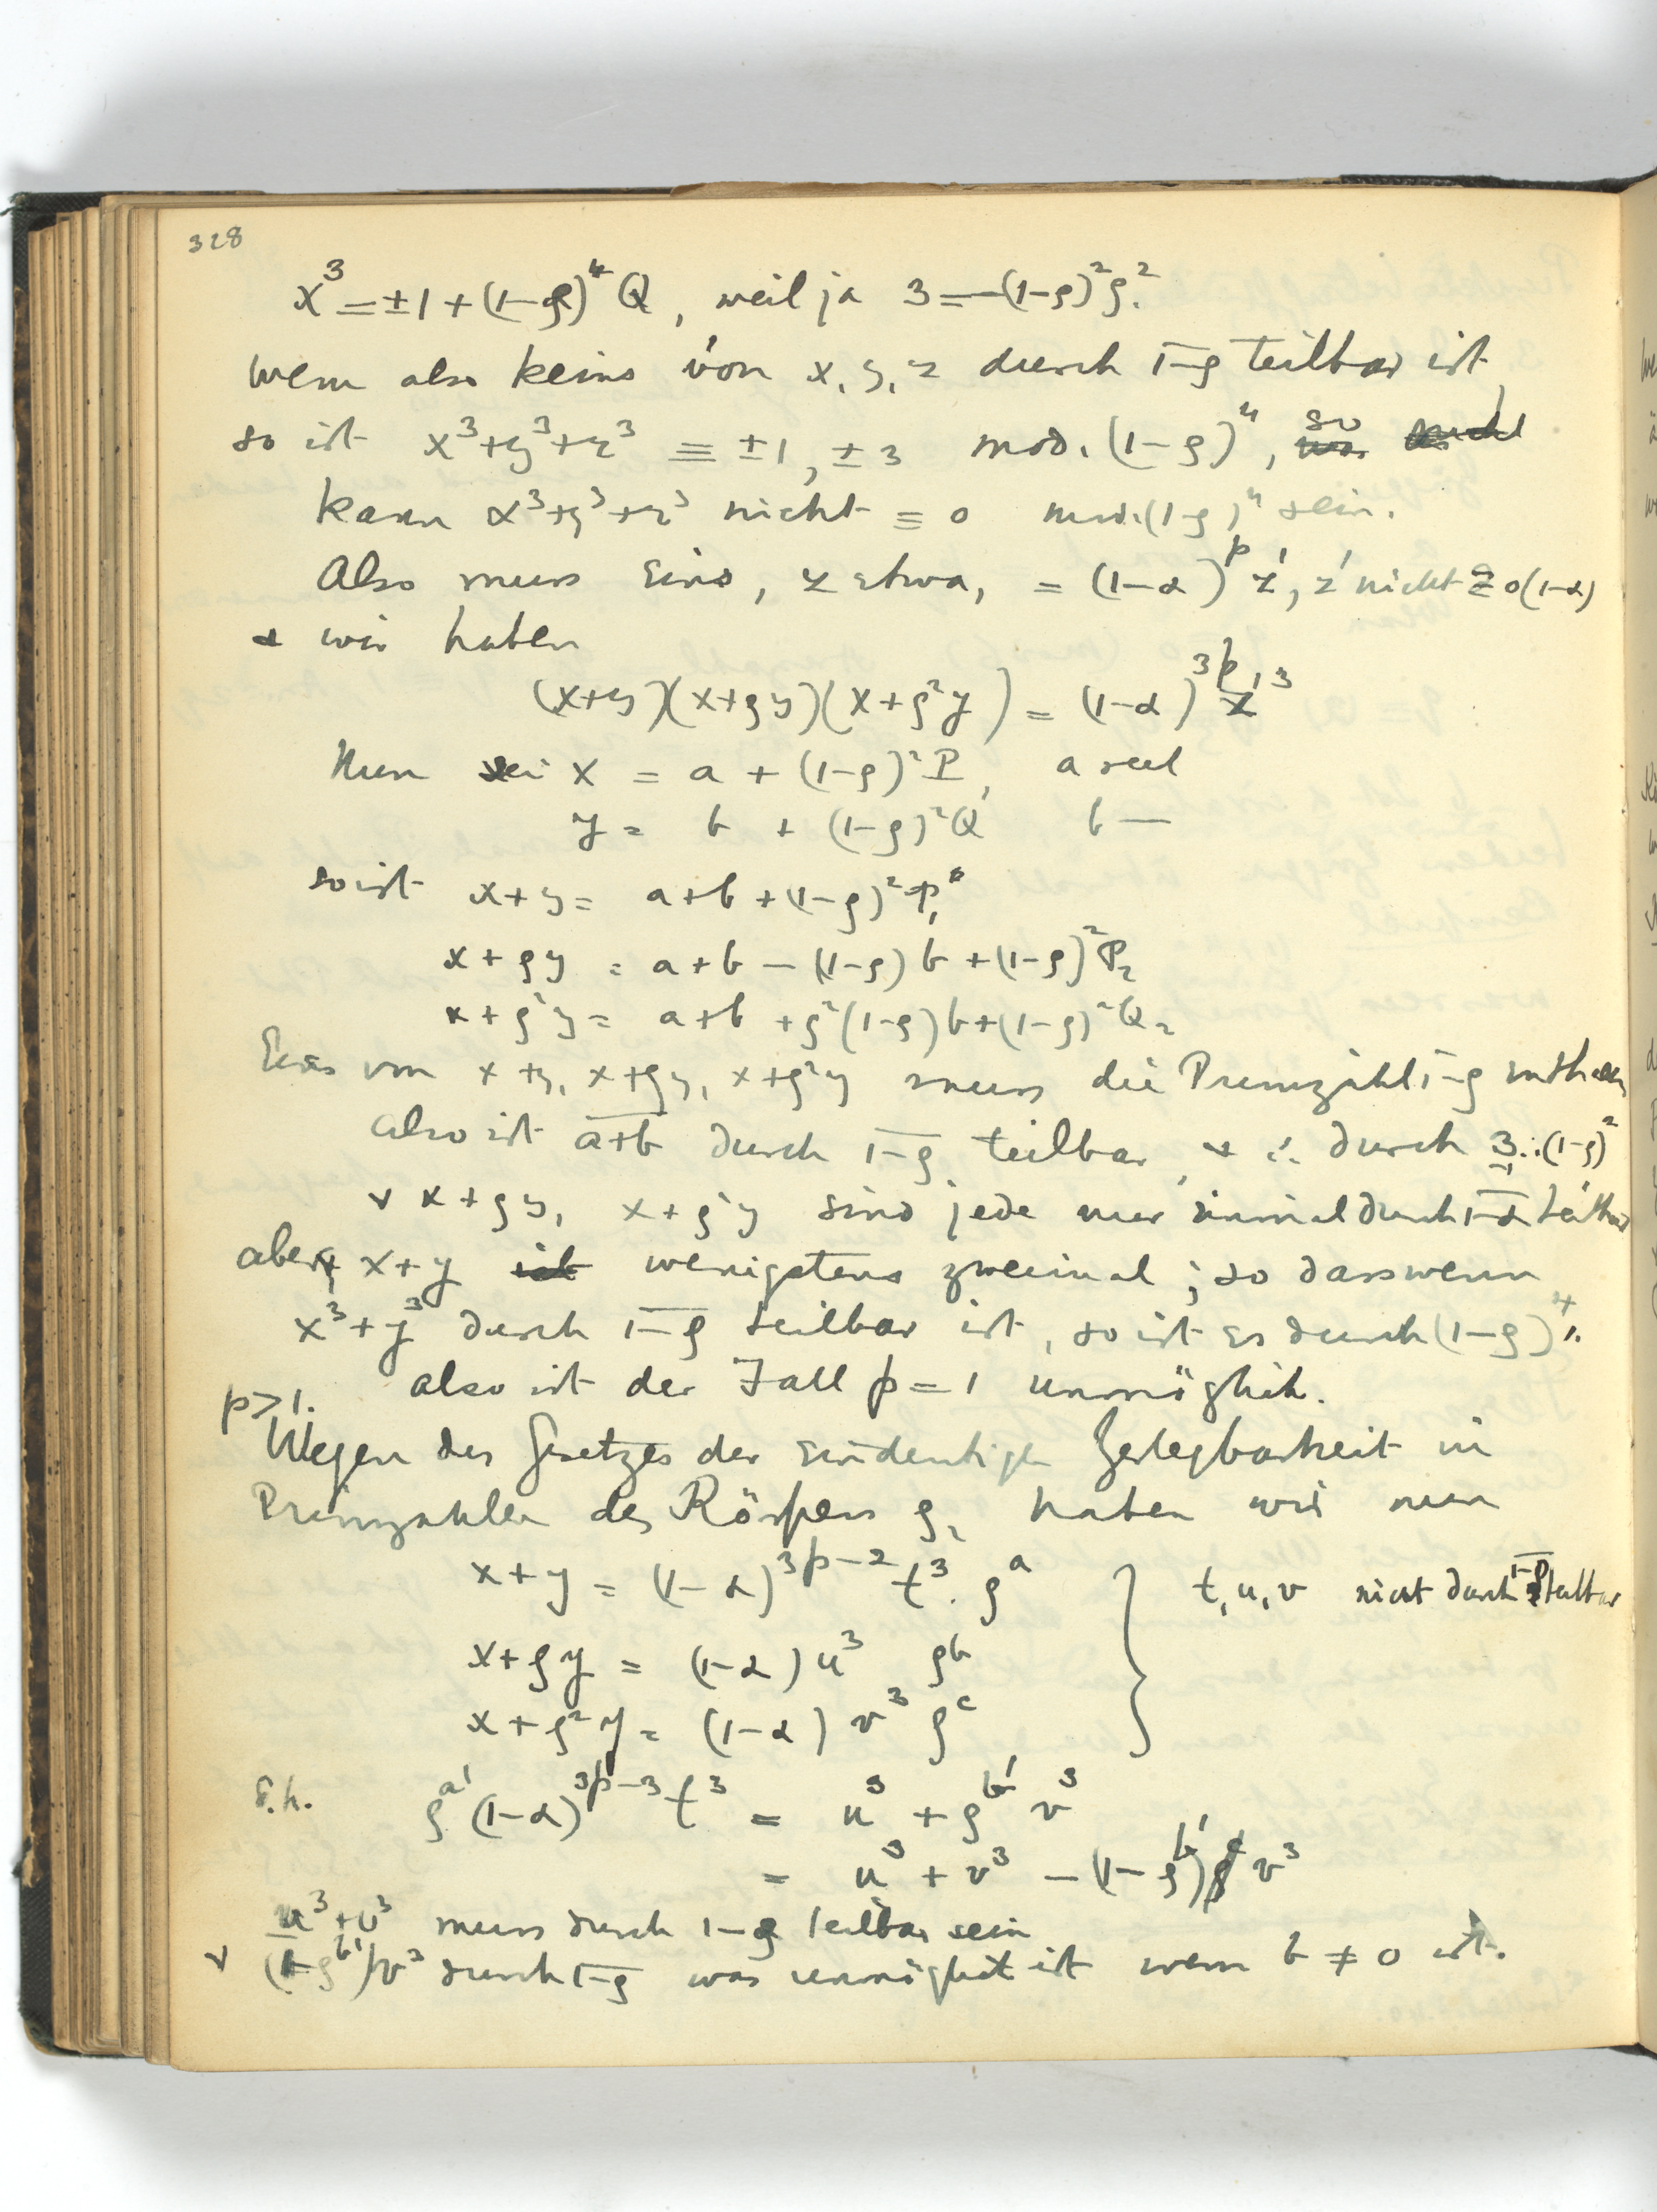 328
x³ = ±1 + (1-ρ)⁴ Q, weil ja 3 = -(1-ρ)²ρ².
Wenn also keins von x, y, z durch 1-ρ teilbar ist,
so ist x³+y³+z³ ≡ ±1, ±3 mod. (1-ρ)⁴, so
kann x³+y³+z³ nicht ≡ 0 mod. (1-ρ)⁴ sein.
Also muss eins, z etwa, = (1-α)^p z', z' nicht ≡ 0 (1-α)
+ wir haben
(x+y)(x+ρy)(x+ρ²y) = (1-α)^{3p} z'³
Nun sei x = a + (1-ρ)² P, a reel
y = b + (1-ρ)² Q b —
so ist x+y = a+b + (1-ρ)² P₁
x+ρy = a+b - (1-ρ) b + (1-ρ)² P₂
x+ρ²y = a+b + ρ²(1-ρ)b + (1-ρ)² Q₂
Eins von x+y, x+ρy, x+ρ²y muss die Primzahl 1-ρ enthalten
also ist a+b durch 1-ρ teilbar, + ∴ durch 3 ∴ (1-ρ)²
+ x+ρy, x+ρ²y sind jede nur einmal durch 1-α teilbar
aber x+y ist wenigstens zweimal; so dass wenn
x³+y³ durch 1-ρ teilbar ist, so ist es durch (1-ρ)⁴.
p>1. also ist der Fall p = 1 unmöglich.
Wegen des Gesetzes der eindeutigen Zerlegbarkeit in
Primzahlen des Körpers ρ, haben wir nun
x+y = (1-α)^{3p-2} t³. ρ^a } t, u, v nicht durch 1-ρ teilbar
x+ρy = (1-α) u³ ρ^b
x+ρ²y = (1-α) v³ ρ^c
d.h. ρ^{a'} (1-α)^{3p-3} t³ = u³ + ρ^{b'} v³
= u³ + v³ - (1-ρ^{b'}) v³
u³+v³ muss durch 1-ρ teilbar sein
+ (1-ρ^{b'})v³ durch 1-ρ was unmöglich ist wenn b ≠ 0 ist.